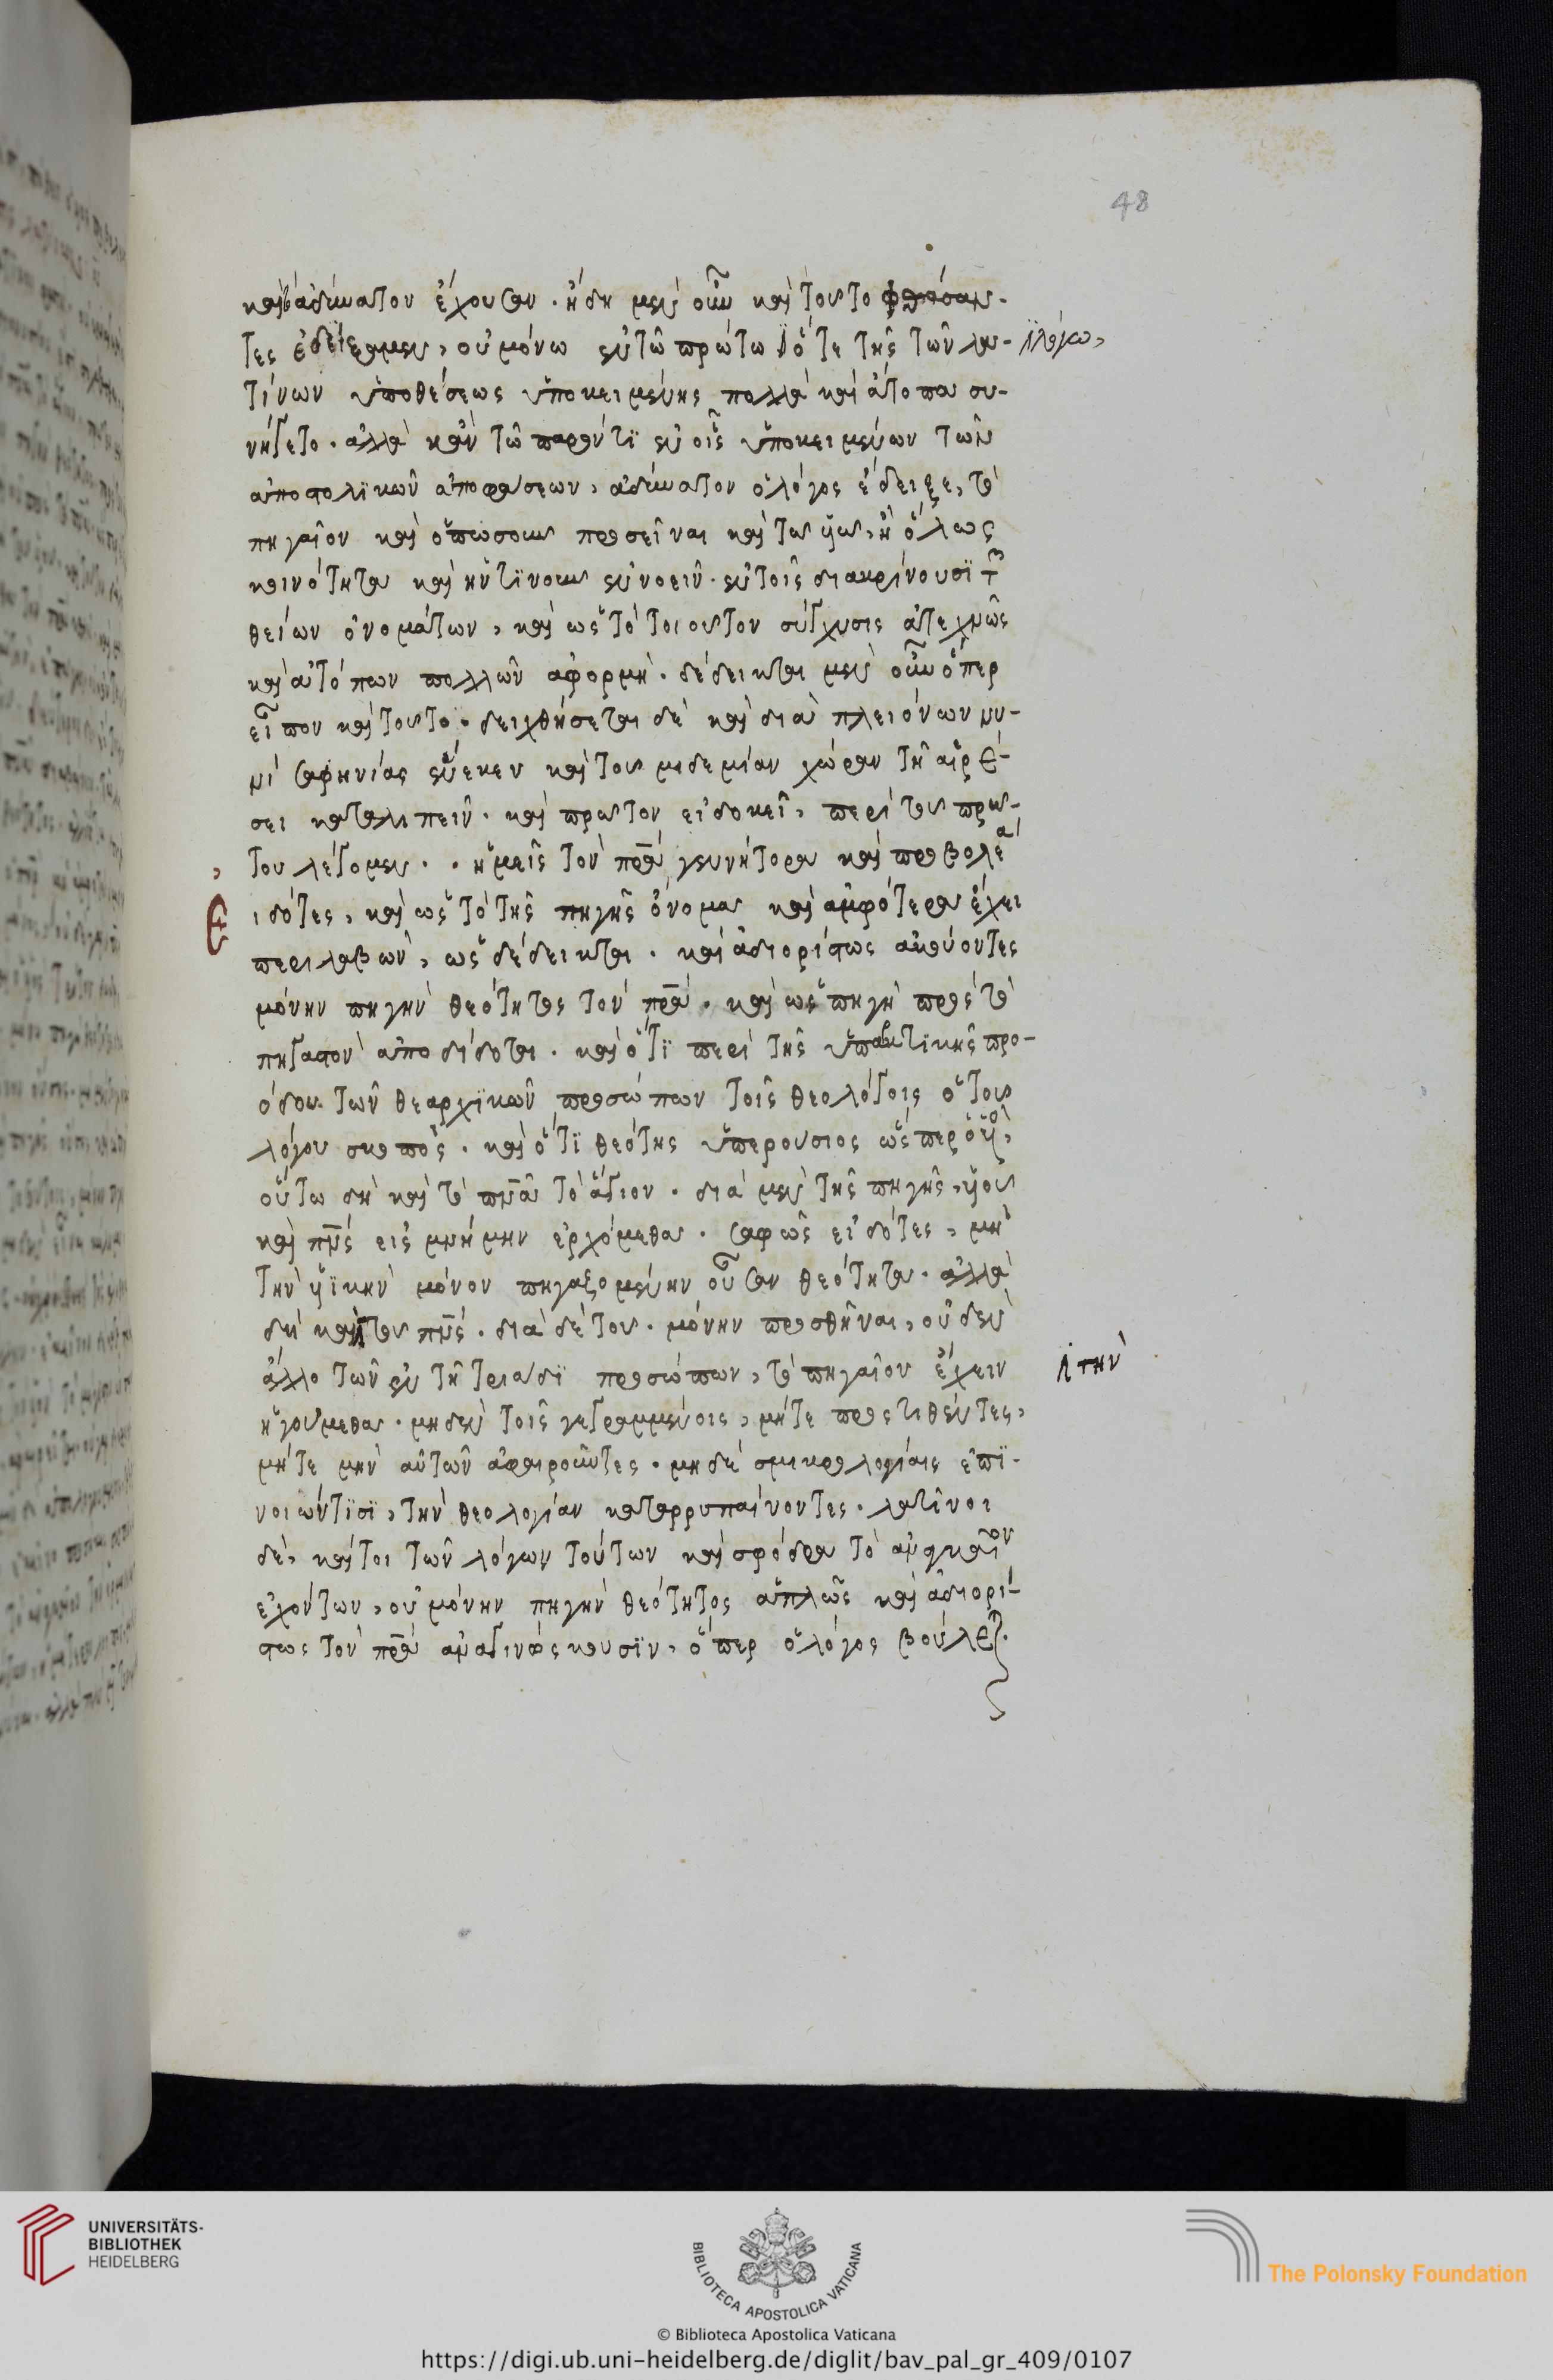 48
καὶ τἀδύνατον ἔχουσαν. ἤδη μὲν οὖν καὶ τοῦτο φθάσαν-
τες ἐδείξαμεν, οὐ μόνω ἐν τῶ πρώτω ὅτε τῆς τῶν λα-
λόγω,
τίνων ὑποθέσεως ὑποκειμένης πολλὰ καὶ ἄτοπα συ-
νήγετο. ἀλλὰ κἀν τῶ παρόντι ἐν οἷς ὑποκειμένων τῶν
ἀποστολικῶν ἀποφάσεων, ἀδύνατον ὁ λόγος ἔδειξε, τὸ
πηγαῖον καὶ ὁπωσοῦν προσεῖναι καὶ τῶ υἱῶ, ἢ ὅλως
κοινότητα καὶ ἡντινοῦν ἐννοεῖν. ἐν τοῖς διακρίνουσι τῶν
θείων ὀνομάτων, καὶ ὡς τὸ τοιοῦτον σύγχυσις ἀτεχνῶς
καὶ ἀτόπων πολλῶν ἀφορμή. δέδεικται μὲν οὖν ὅπερ
εἶπον καὶ τοῦτο. δειχθήσεται δὲ καὶ διὰ πλειόνων νυ-
νὶ σαφηνίας ἕνεκεν καὶ τοῦ μηδεμίαν χώραν τῆ αἱρέ-
σει καταλιπεῖν. καὶ πρῶτον εἰ δοκεῖ, περὶ τοῦ πρώ-
του λέγομεν. ἡμεῖς τὸν πρα γεννήτορα καὶ προβολέα
ε
ἰδότες, καὶ ὡς τὸ τῆς πηγῆς ὄνομα καὶ ἀμφότερα ἔχει
περιλαβὼν, ὡς δέδεικται. καὶ ἀδιορίστως ἀκούοντες
μόνην πηγὴν θεότητος τὸν πρα. καὶ ὡς πηγὴ πρὸς τὸ
πηγαστὸν ἀποδίδοται. καὶ ὅτι περὶ τῆς ὑπαρκτικῆς προ-
όδου τῶν θεαρχικῶν προσώπων τοῖς θεολόγοις ὁ τοῦ
λόγου σκοπός. καὶ ὅτι θεότης ὑπερούσιος ὥσπερ ὁ υἱὸς,
οὕτω δὴ καὶ τὸ πνα τὸ ἅγιον. διὰ μὲν τῆς πηγῆς, υἱοῦ
καὶ πνς εἰς μνήμην ἐρχόμεθα. σαφῶς εἰδότες, μὴ
τὴν υἱικὴν μόνον πηγαζομένην οὖσαν θεότητα. ἀλλὰ
δὴ καὶ τοῦ πνς. διὰ δὲ τοῦ. μόνην προσθῆναι, οὐδὲν
τὴν
ἄλλο τῶν ἐν τῆ τριάδι προσώπων, τὸ πηγαῖον ἔχειν
ἡγούμεθα. μηδὲν τοῖς γεγραμμένοις, μήτε προστιθέντες,
μήτε μὴν αὐτῶν ἀφαιροῦντες. μηδὲ σμικρολογίαις ἐπι-
νοιῶν τισι, τὴν θεολογίαν καταρρυπαίνοντες. λατῖνοι
δὲ, καίτοι τῶν λόγων τούτων καὶ σφόδρα τὸ ἀναγκαῖον
ἐχόντων, οὐ μόνην πηγὴν θεότητος ἁπλῶς καὶ ἀδιορί-
στως τὸν πρα ἀναγινώσκουσιν, ὅπερ ὁ λόγος βούλεται.
UNIVERSITÄTS-
BIBLIOTHEK
HEIDELBERG
BIBLIOTECA APOSTOLICA VATICANA
The Polonsky Foundation
© Biblioteca Apostolica Vaticana
https://digi.ub.uni-heidelberg.de/diglit/bav_pal_gr_409/0107